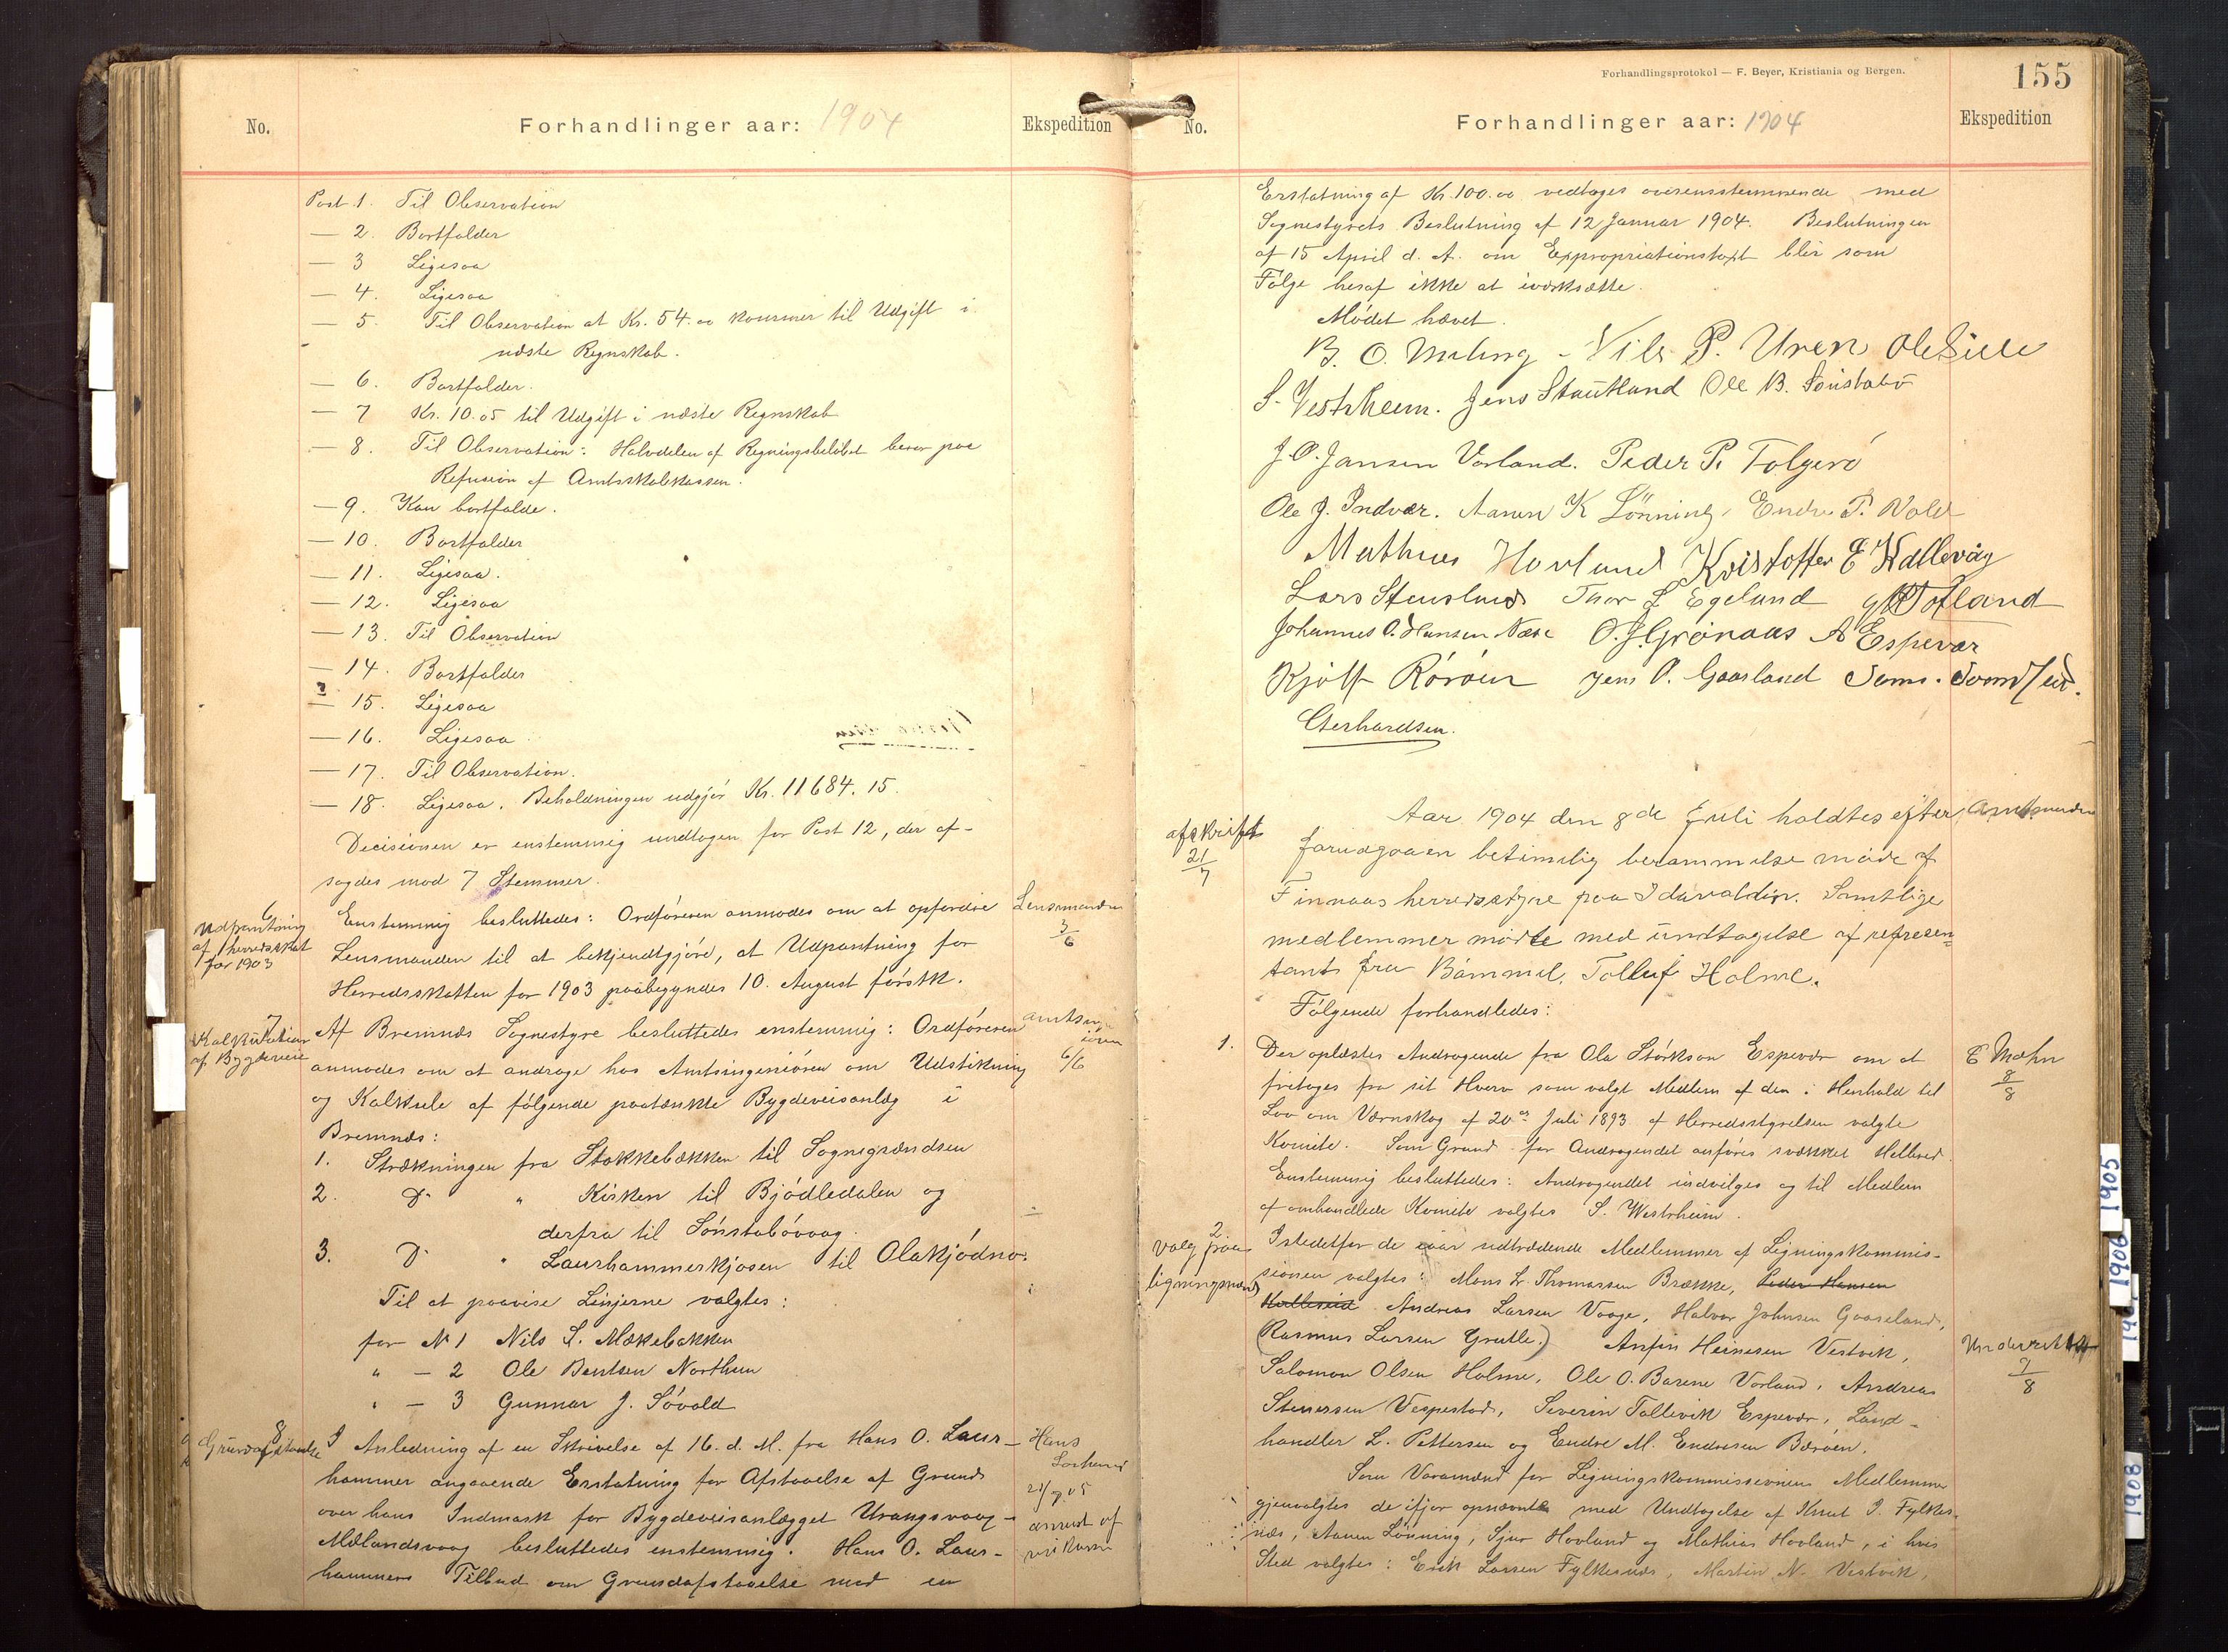 No.
Forhandlinger aar: 1904
Ekspedition
Post 1. Til Observation
— 2. Bortfalder
— 3 Ligesaa
— 4. Ligesaa
— 5. Til Observation at Kr. 54.00 kommer til Udgift i
næste Regnskab.
— 6. Bortfalder.
— 7 Kr. 10.05 til Udgift i næste Regnskab
— 8. Til Observation: Halvdelen af Regningsbeløbet beror paa
Refusion af Amtsskolekassen.
— 9. Kan bortfalde.
— 10. Bortfalder
— 11. Ligesaa.
— 12. Ligesaa
— 13. Til Observation
— 14. Bortfalder
— 15. Ligesaa
— 16. Ligesaa
— 17. Til Observation.
— 18. Ligesaa. Beholdningen udgjør Kr. 11684.15.
Decisionen er enstemmig undtagen for Post 12, der af-
sagdes mod 7 Stemmer.
6
Udpantning
af herredsskat
for 1903
Enstemmig besluttedes: Ordføreren anmodes om at opfordre
Lensmanden til at bekjendtgjøre, at Udpantning for
Herredsskatten for 1903 paabegyndes 10. August førstk.
Lensmanden
3/6
7
Kalkulation
af Bygdeveie
Af Bremnæs Sognestyre besluttedes enstemmig: Ordføreren
anmodes om at andrage hos Amtsingeniøren om Udstikning
og Kalkule af følgende paatænkte Bygdeveisanlæg i
Bremnæs:
6/6
1. Strækningen fra Stokkebækken til Sognegrændsen
2. Do " Kirken til Bjødledalen og
derfra til Sønstabøvaag.
3. Do " Laurhammerkjosen til Olakjødno.
Til at paavise Linjerne valgtes:
for No 1 Nils L. Mækebakken
" — 2 Ole Bentsen Northun
" — 3 Gunnar J. Søvold
8
Grundafstaaelse
I Anledning af en Skrivelse af 16. d. M. fra Hans O. Laur-
hammer angaaende Erstatning for Afstaaelse af Grund
over hans Indmark for Bygdeveisanlægget Urangsvaag-
Mælandsvaag besluttedes enstemmig: Hans O. Laur-
hammers Tilbud om Grundafstaaelse mod en
Hans
Forhandlingsprotokol — F. Beyer, Kristiania og Bergen.
155
No.
Forhandlinger aar: 1904
Ekspedition
Erstatning af Kr. 100.00 vedtages overensstemmende med
Sognestyrets Beslutning af 12 Januar 1904. Beslutningen
af 15 April d. A. om Expropriationstaxt blir som
Følge heraf ikke at iværksætte.
Mødet hævet.
B. O. Meling - Nils P. Uren Ole Siele
S. Vestrheim. Jens Stautland Ole B. Sønstabø
J. O. Jansen Vorland. Peder P. Folgerø
Ole J. Indvær. Aanen K Lønning, Endre P. Vold
Mathias Hovland Kristoffer E Kallevåg
Lars Stensland Thor L Egeland Tofland
Johannes O. Hansen Næse O. J. Grønaas A Espevær
Kjøll Rørøen Jens P. Gaasland
Gerhardsen.
afskrift
21/7
Aar 1904 den 8de Juli holdtes efter
forudgaaen betimelig berammelse møde af
Finnaas herredsstyre paa Idavaldur. Samtlige
medlemmer mødte med undtagelse af represen-
tant fra Bømmel, Tollef Holme.
Følgende forhandledes:
Amtmanden
1. Der oplæstes Andragende fra Ola Størkson Espevær om at
fritages fra sit Hverv som valgt Medlem af den i Henhold til
Lov om Værnskog af 20de Juli 1893 af Herredsstyrelsen valgte
Komite. Som Grund for Andragendet anføres svækket Helbred.
Enstemmig besluttedes: Andragendet indvilges og til Medlem
af omhandlede Komite valgtes S. Westrheim.
E Mæhn
8/8
2
Valg paa
ligningsmænd
Istedetfor de iaar udtrædende Medlemmer af Ligningskommis-
sionen valgtes: Mons L. Thomassen Brække, Peder Hansen
Kallevik Andreas Larsen Vaage, Halvor Johnsen Gaaseland,
(Rasmus Larsen Grutle,) Anfin Heinesen Vestvik,
Salomon Olsen Holme, Ole O. Barene Vorland, Andreas
Stenersen Vespestad, Severin Tollevik Espevær, Land-
handler L. Pettersen og Endre M. Endresen Bærøen.
Underrettet
9/8
Som Varamænd for Ligningskommissionens Medlemmer
gjenvalgtes de ifjor opnævnte med Undtagelse af Knut I. Fylkes-
næs, Aanen Lønning, Sjur Hovland og Mathias Hovland, i hvis
Sted valgtes: Erik Larsen Fylkesnæs, Martin N. Vestvik,
1905
1906
1908